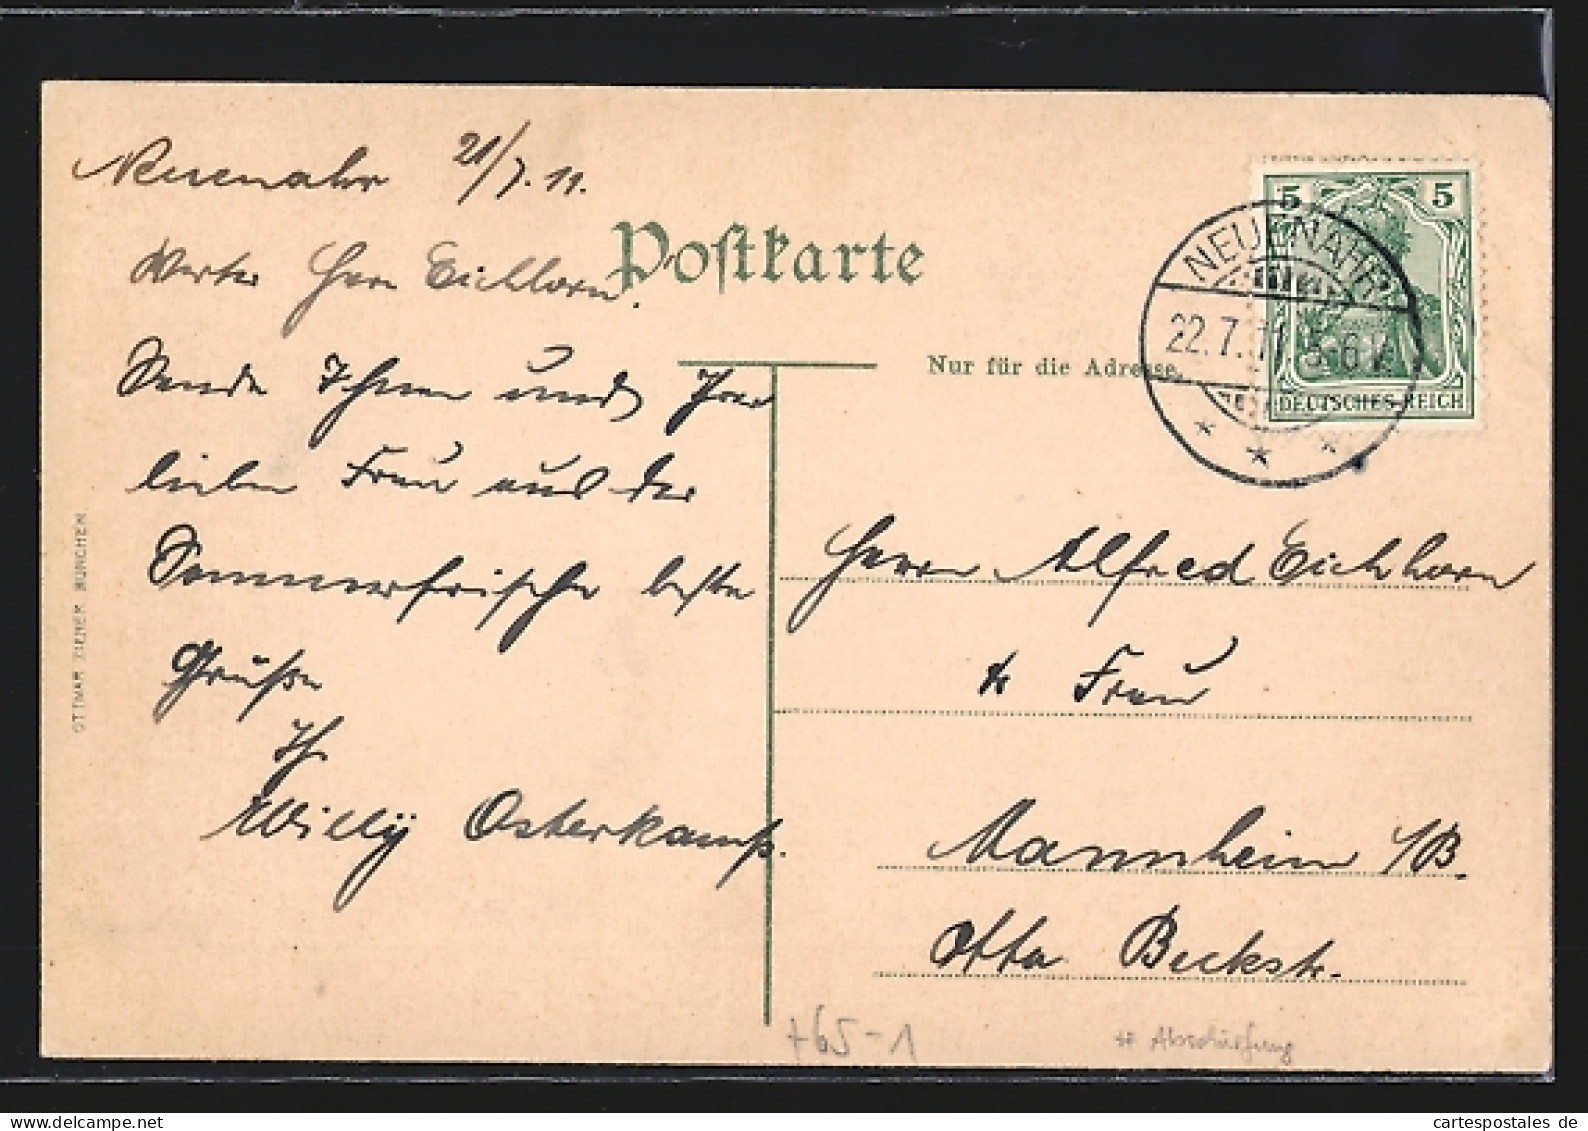 Neuenahr 21/7. 11.
Werter Herr Eichhorn.
Sende Ihnen und Ihrer
lieben Frau aus der
Sommerfrische beste
Grüße
Ihr
Willÿ Osterkamp.
Postkarte
Nur für die Adresse.
5 5
DEUTSCHES REICH
NEUENAHR
22.7.11. 5-6 V.
Herrn Alfred Eichhorn
& Frau
Mannheim /B.
Otto Beckstr.
OTTMAR ZIEHER MÜNCHEN
+65-1
** Abschürfung
cartespostales de